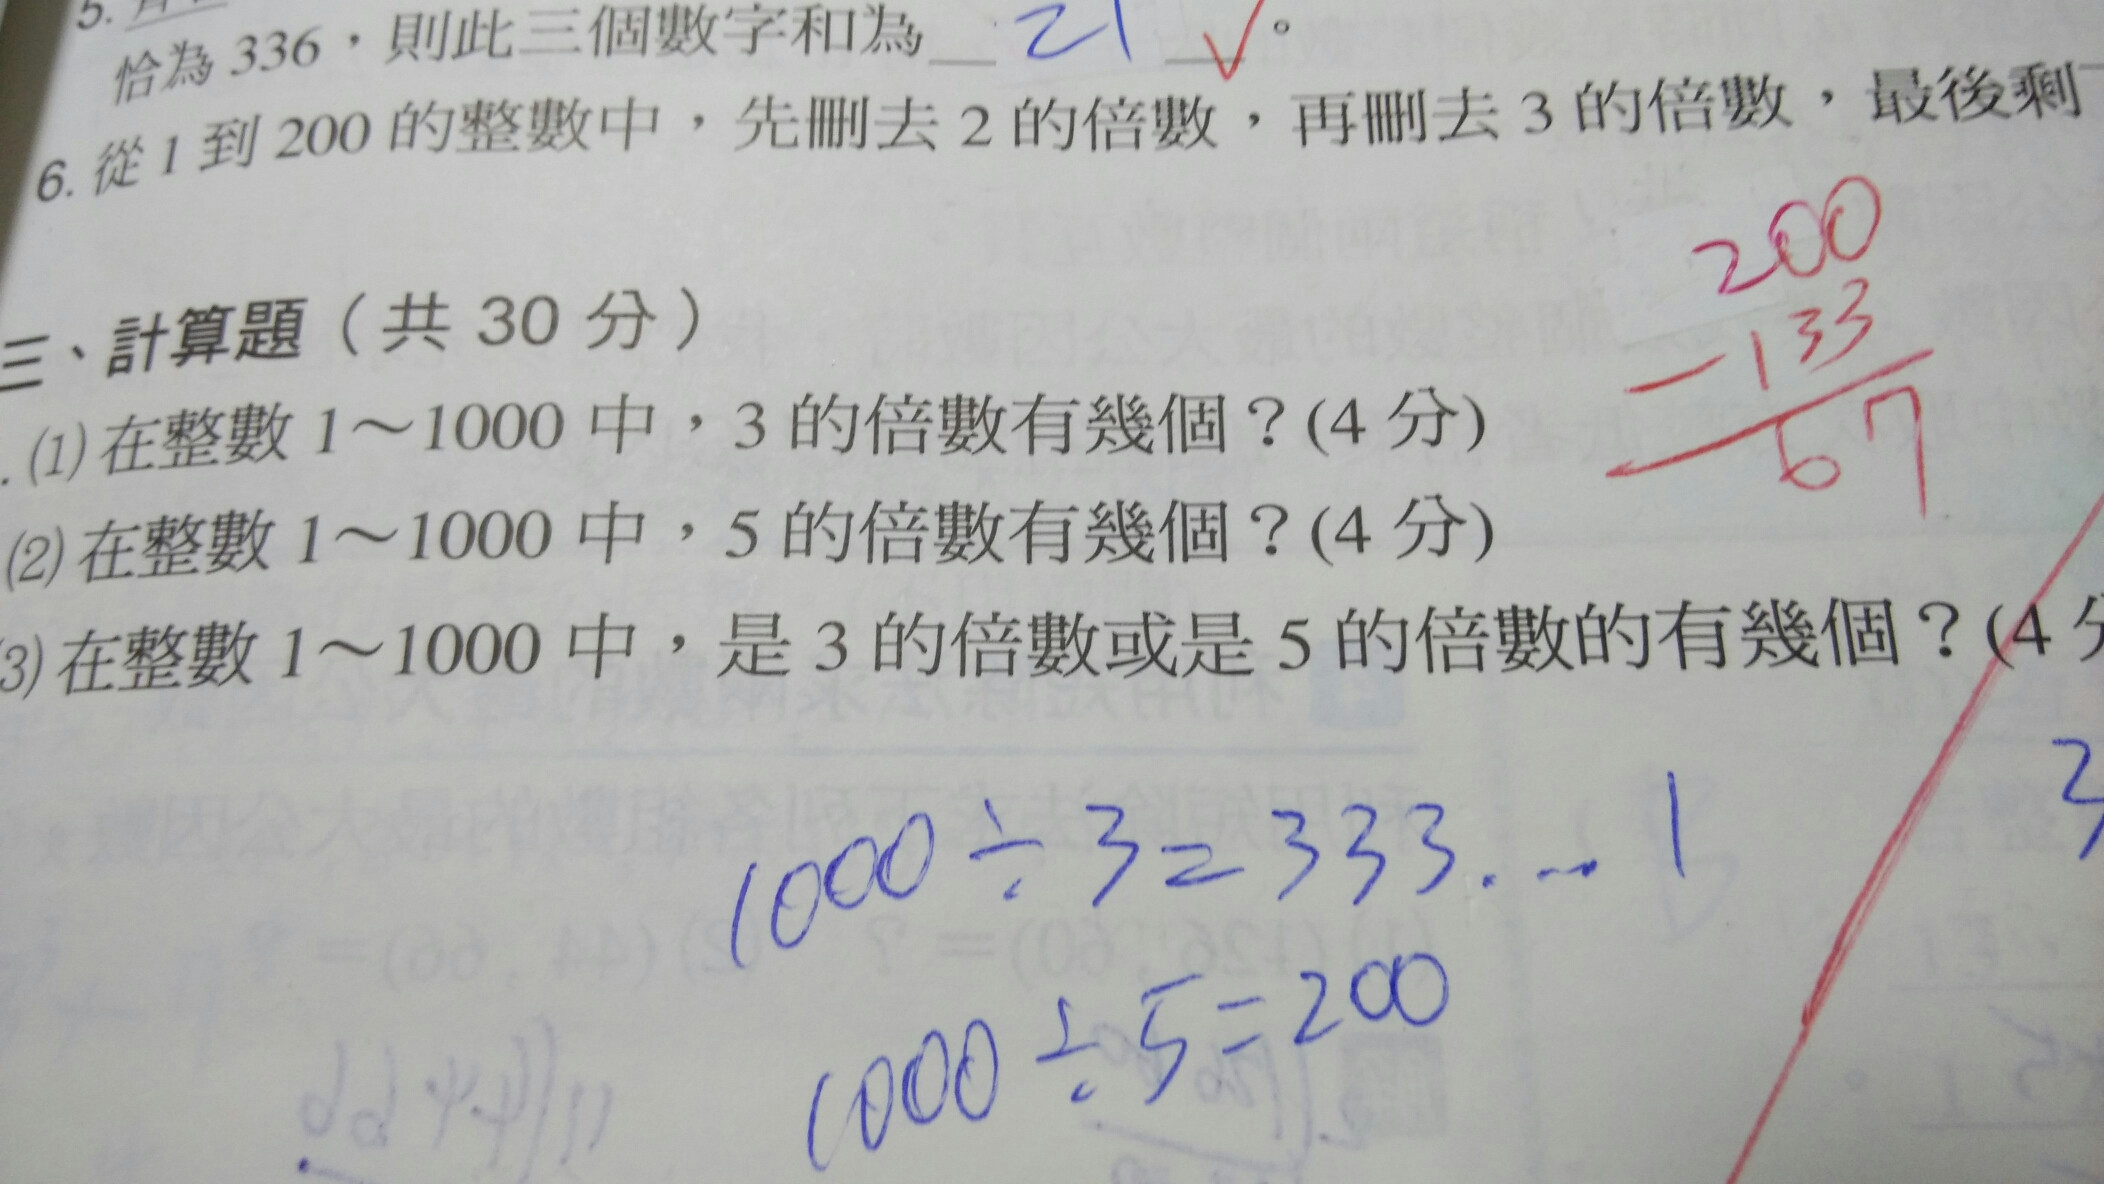 5.
恰為 336，則此三個數字和為 21 ✓。
6. 從 1 到 200 的整數中，先刪去 2 的倍數，再刪去 3 的倍數，最後剩
200
-133
67
三、計算題（共 30 分）
.(1) 在整數 1～1000 中，3 的倍數有幾個？(4 分)
(2) 在整數 1～1000 中，5 的倍數有幾個？(4 分)
3) 在整數 1～1000 中，是 3 的倍數或是 5 的倍數的有幾個？(4 分
3
1000÷3=333...1
1000÷5=200